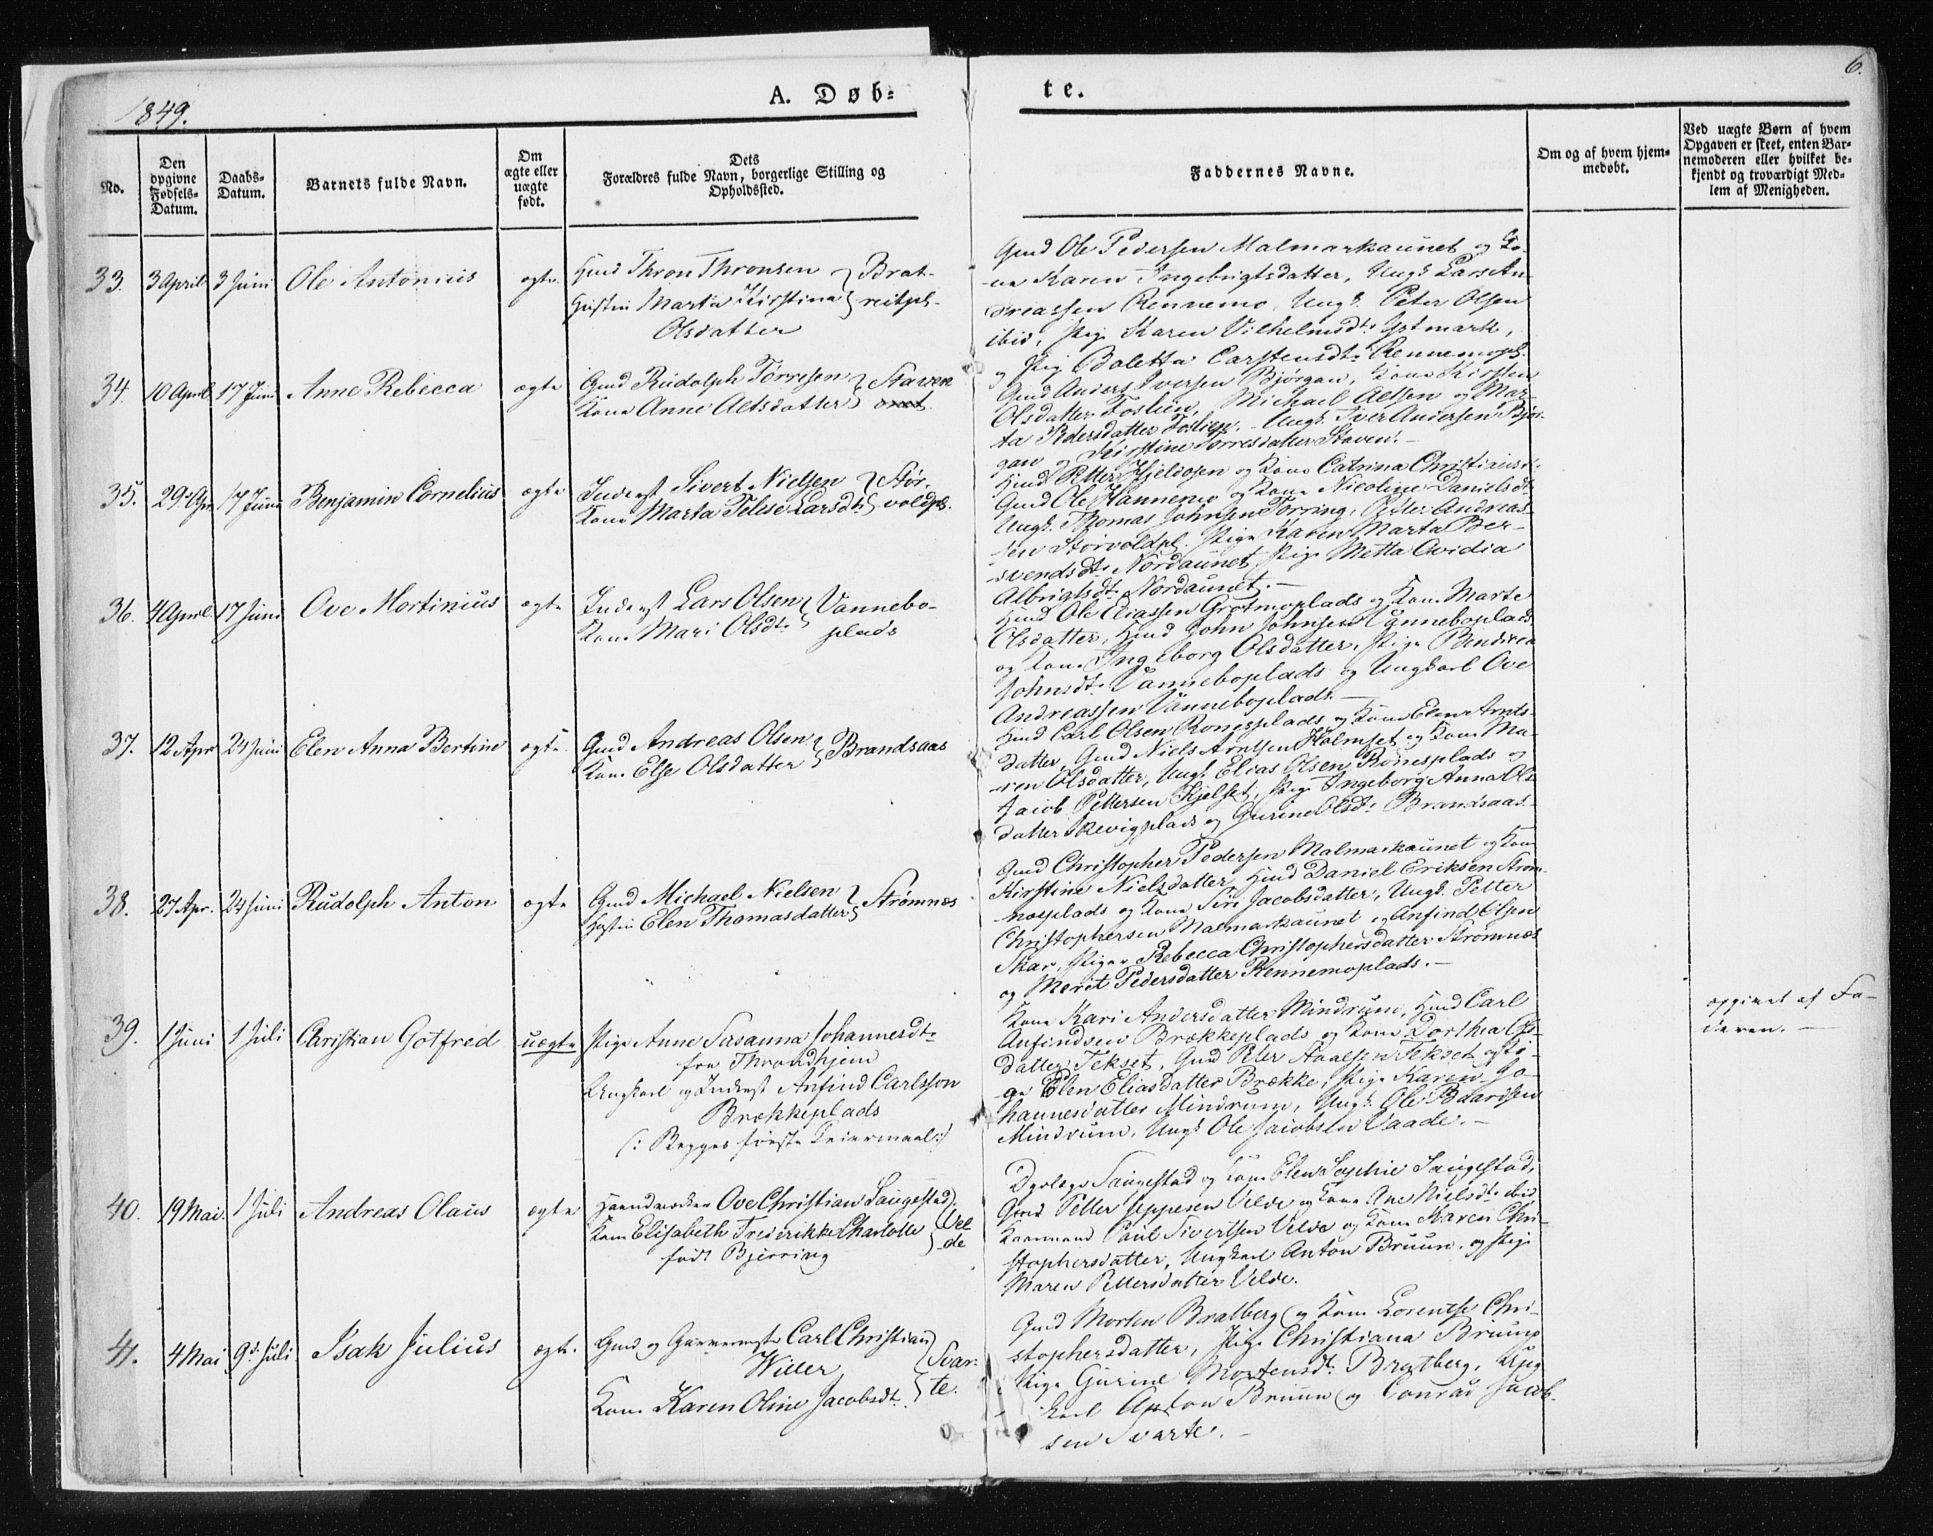 1849.
A. Døb-
te.
6.
No.
Den opgivne Fødsels-Datum.
Daabs-Datum.
Barnets fulde Navn.
Om ægte eller uægte født.
Dets
Forældres fulde Navn, borgerlige Stilling og
Opholdssted.
Faddernes Navne.
Om og af hvem hjem-
medøbt.
Ved uægte Børn af hvem
Opgaven er skeet, enten Bar-
nemoderen eller hvilket be-
kjendt og troværdigt Med-
lem af Menigheden.
33. 3 April 3 Juni Ole Antonius ægte
Huusm Thron Thronsen } Brat-
Hustru Marta Kirstina } reitpl.
Olsdatter
Gmd Ole Pedersen Malmarkaunet og Ko-
ne Karen Ingebrigtsdatter, Ungk Lars An-
dreassen Rennemo, Ungk. Peter Olsen
ibid, Pige Karen Vilhelmsdt. Ystmark,
og Pige Boletta Carstensdt. Rennemopl.
34. 10 April 17 Juni Anne Rebecca ægte
Gmd Rudolph Tørresen } Staven
Kone Anne Altsdatter }
Gmd Anders Iversen Bjørgan, Kone Kirsten
Olsdatter Foslien, Michael Altsen og Mar-
ta Pedersdatter Foslien, Ungk. Iver Andersen Bjør-
gan og Kirstine Tørresdatter Staven.
35. 29 Apr 17 Juni Benjamin Cornelius ægte
Inderst Sivert Nielsen } Stor-
Kone Marta Felise Larsdt. } voldpl.
Hmd Petter Hjeldosen og Kone Catrina Christiansd.
Gmd Ole Hannemo og Kone Nicoline Danielsdt.
Ungk. Thomas Johnsen Tørring, Petter Andreas-
sen Storvoldpl. Pige Karen Marta Ber-
svendsdt. Nordaunet, Pige Metta Ovidia
Albrigtsdt. Nordaunet.
36. 4 April 17 Juni Ove Mortinius ægte
Inderst Lars Olsen } Vannebo-
Kone Mari Olsdt. } plads
Hmd Ole Eliassen Grotmoplads og Kone Marte
Olsdatter, Hmd John Johnsen Vanneboplads
og Kone Ingeborg Olsdatter, Pige Bendrea
Johnsdt. Vanneboplads og Ungkarl Ove
Andreassen Vanneboplads.
37. 12 Apr 24 Juni Elen Anna Bertine ægte
Gmd Andreas Olsen } Brandsaas
Kone Else Olsdatter }
Hmd Carl Olsen Ronesplads og Kone Elen Arnts-
datter, Gmd Niels Arntsen Holmset og Kone Ma-
ren Olsdatter, Ungk. Elias Olsen Ronesplads og
Jacob Pettersen Kjelset, Pige Ingeborg Anna Ols-
datter Skevigplads og Gurine Olsdt. Brandsaas.
38. 27 Apr. 24 Juni Rudolph Anton ægte
Gmd Michael Nielsen } Strømnes
Hustru Elen Thomasdatter }
Gmd Christopher Pedersen Malmarkaunet og Kone
Kirstine Nielsdatter, Hmd Daniel Eriksen Strøm-
næsplads og Kone Siri Jacobsdatter, Ungk. Petter
Christophersen Malmarkaunet og Anfind Olsen
Skar, Piger Rebecca Christophersdatter Strømnæs
og Merit Pedersdatter Rennemoplads.
39. 1 Juni 1 Juli Christian Gotfred uægte
Pige Anne Susanna Johannesdt.
fra Throndhjem
Ungkarl og Inderst Anfind Carlsson
Brækkeplads
(: Begges første Leiermaal :)
Kone Kari Andersdatter Mindrum, Hmd Carl
Anfindsen Brækkeplads og Kone Dorthea Ols-
datter Tekset, Gmd Peter Paalsen Tekset og Pi-
ge Elen Eliasdatter Brække, Pige Karen Jo-
hannesdatter Mindrum, Ungk. Ole Baardsen
Mindrum, Ungk Ole Jacobsen Vaade.
opgivet af Fa-
deren.
40. 19 Mai 1 Juli Andreas Olaus ægte
Haandværker Ove Christian Saugestad }
Kone Elisabeth Frederikke Charlotte } Vel-de
født Bjerring
Dyrlæge Saugestad og Kone Elen Sophie Saugestad,
Gmd Petter Jeppesen Velde og Kone Ane Nielsdt. ibid,
Kaarmand Paul Sivertsen Velde og Kone Karen Chri-
stophersdatter, Ungkarl Anton Bruun og Pige
Maren Pettersdatter Velde.
41. 4 Mai 9d Juli Isak Julius ægte
Gmd og Garvermester Carl Christian
Willer } Svar-
Kone Karen Oline Jacobsdt. } te.
Gmd Morten Bratberg og Kone Lorentse Chri-
stophersdatter, Pige Christiana Bruun
Pige Gurine Mortensdt. Bratberg, Ung-
karl Anton Bruun og Conrad Jacob-
sen Svarte.